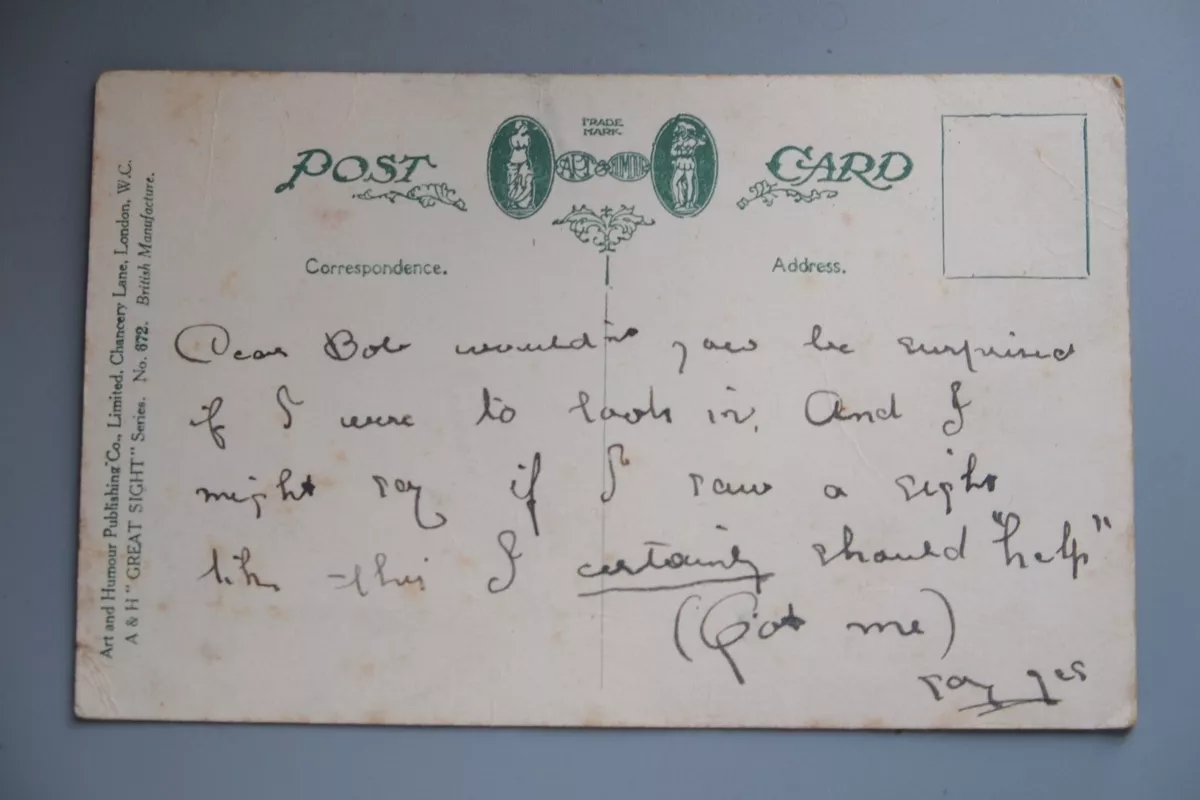 POST CARD
TRADE
MARK
ART & HUMOUR
Correspondence.
Address.
Art and Humour Publishing Co., Limited, Chancery Lane, London, W.C.
A & H "GREAT SIGHT" Series. No. 872. British Manufacture.
Dear Bob wouldnt you be surprised
if I were to look in. And I
might say if I saw a sight
like this I certainly should "help"
(Got me)
say yes